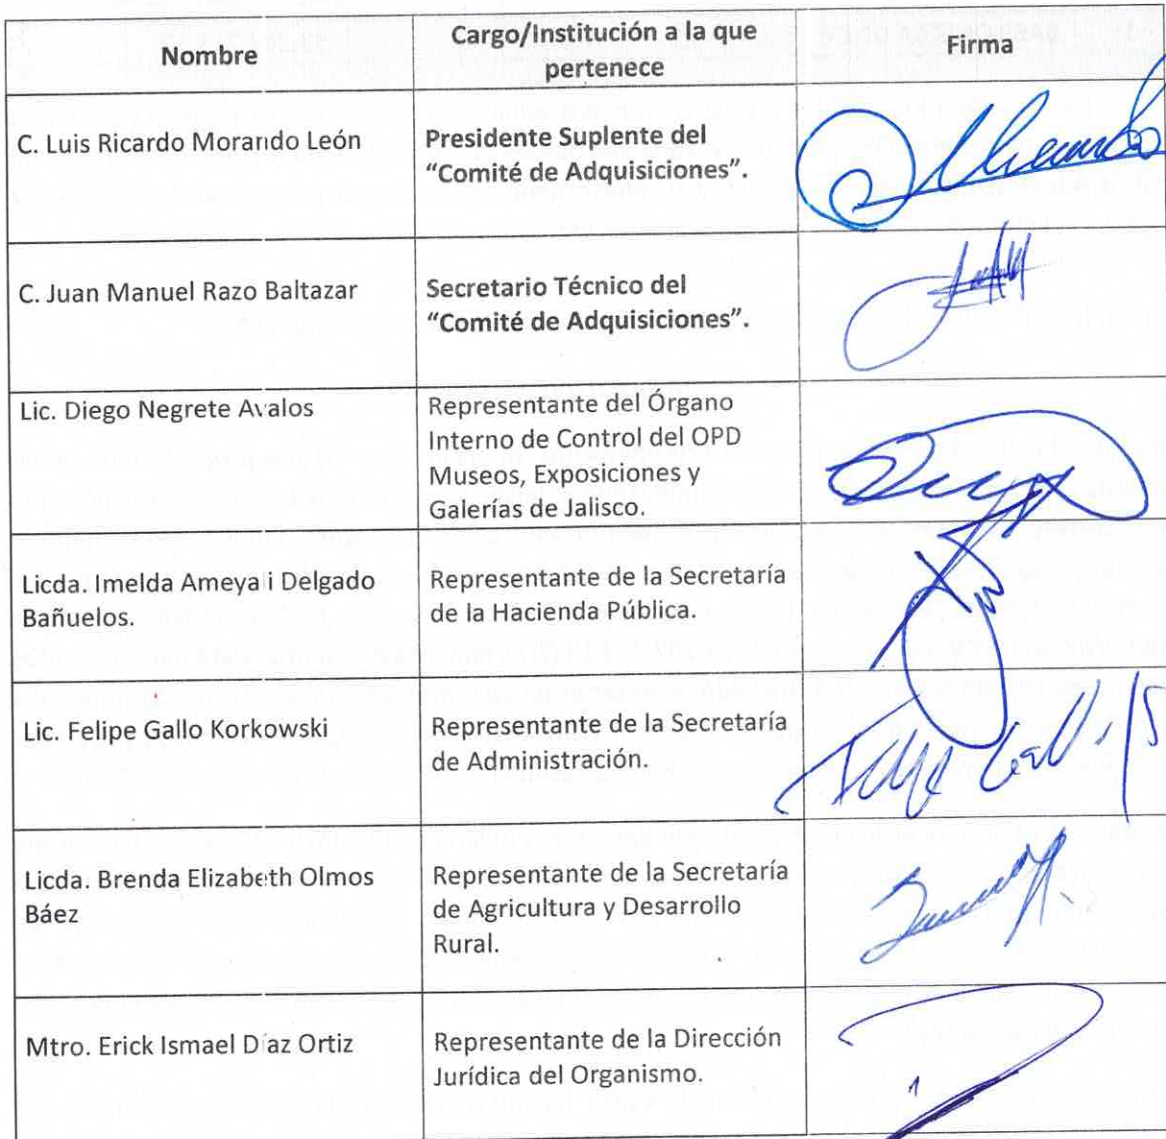 Nombre
Cargo/Institución a la que
pertenece
Firma
C. Luis Ricardo Morando León
Presidente Suplente del
“Comité de Adquisiciones”.
C. Juan Manuel Razo Baltazar
Secretario Técnico del
“Comité de Adquisiciones”.
Lic. Diego Negrete Avalos
Representante del Órgano
Interno de Control del OPD
Museos, Exposiciones y
Galerías de Jalisco.
Licda. Imelda Ameyali Delgado
Bañuelos.
Representante de la Secretaría
de la Hacienda Pública.
Lic. Felipe Gallo Korkowski
Representante de la Secretaría
de Administración.
Licda. Brenda Elizabeth Olmos
Báez
Representante de la Secretaría
de Agricultura y Desarrollo
Rural.
Mtro. Erick Ismael Díaz Ortiz
Representante de la Dirección
Jurídica del Organismo.